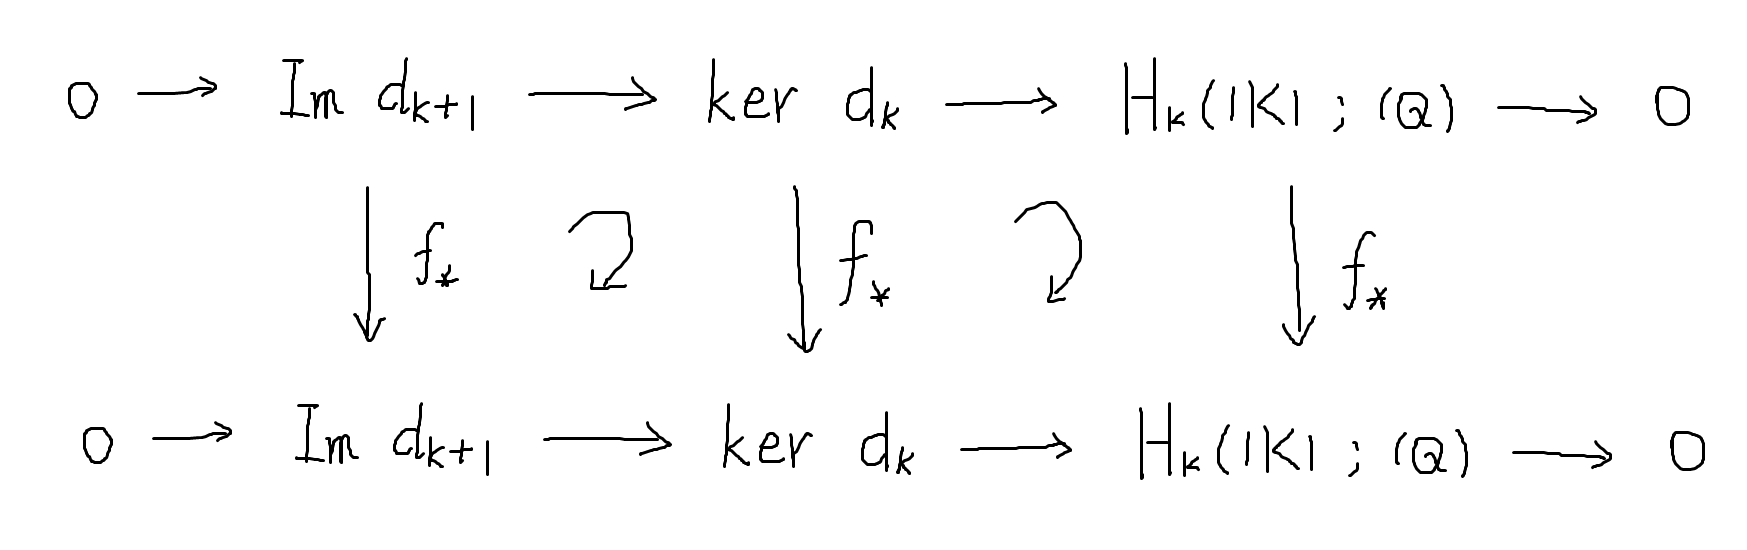 0 → Im d_{k+1} → ker d_k → H_k(|K| ; ℚ) → 0
↓ f_* ↓ f_* ↓ f_*
0 → Im d_{k+1} → ker d_k → H_k(|K| ; ℚ) → 0